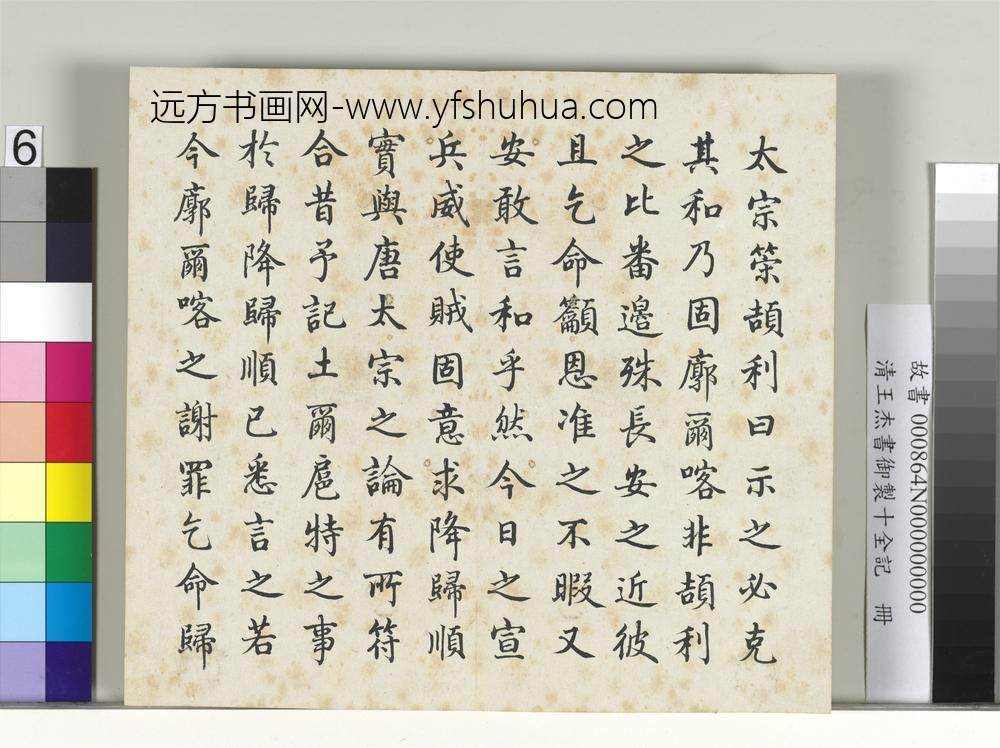 远方书画网-www.yfshuhua.com
太宗策頡利曰示之必克
其和乃固廓爾喀非頡利
之比番邉殊長安之近彼
且乞命籲恩准之不暇又
安敢言和乎然今日之宣
兵威使賊固意求降歸順
實與唐太宗之論有所符
合昔予記土爾扈特之事
於歸降歸順已悉言之若
今廓爾喀之謝罪乞命歸
6
故書 000864N000000000
清王杰書御製十全記 冊